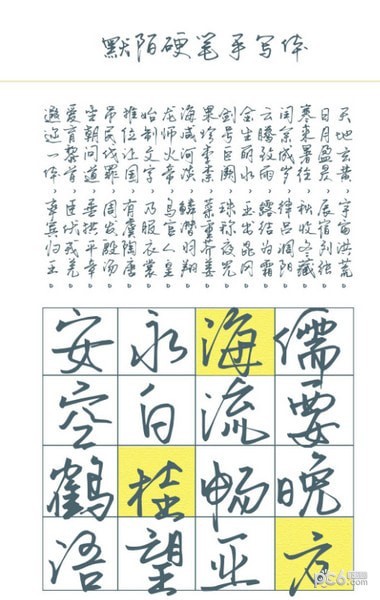 默陌硬笔手写体
天地玄黄，宇宙洪荒。
日月盈昃，辰宿列张。
寒来暑往，秋收冬藏。
闰余成岁，律吕调阳。
云腾致雨，露结为霜。
金生丽水，玉出昆冈。
剑号巨阙，珠称夜光。
果珍李柰，菜重芥姜。
海咸河淡，鳞潜羽翔。
龙师火帝，鸟官人皇。
始制文字，乃服衣裳。
推位让国，有虞陶唐。
吊民伐罪，周发殷汤。
坐朝问道，垂拱平章。
爱育黎首，臣伏戎羌。
遐迩一体，率宾归王。
安永海儒
空白流要
鹤桂畅晚
语望亚夜